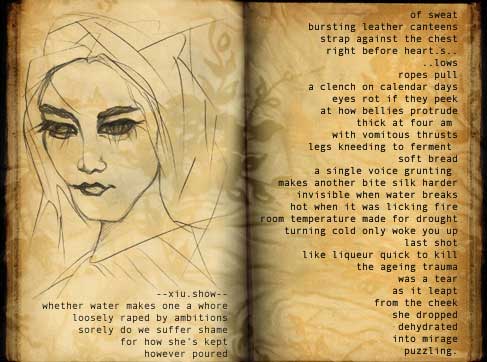 --xiu.show--
whether water makes one a whore
loosely raped by ambitions
sorely do we suffer shame
for how she's kept
however poured
of sweat
bursting leather canteens
strap against the chest
right before heart.s..
..lows
ropes pull
a clench on calendar days
eyes rot if they peek
at how bellies protrude
thick at four am
with vomitous thrusts
legs kneeding to ferment
soft bread
a single voice grunting
makes another bite silk harder
invisible when water breaks
hot when it was licking fire
room temperature made for drought
turning cold only woke you up
last shot
like liqueur quick to kill
the ageing trauma
was a tear
as it leapt
from the cheek
she dropped
dehydrated
into mirage
puzzling.